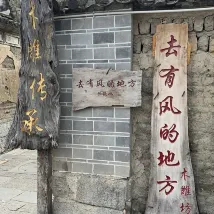 木雕传承
去有风的地方
去有风的地方
木雕坊